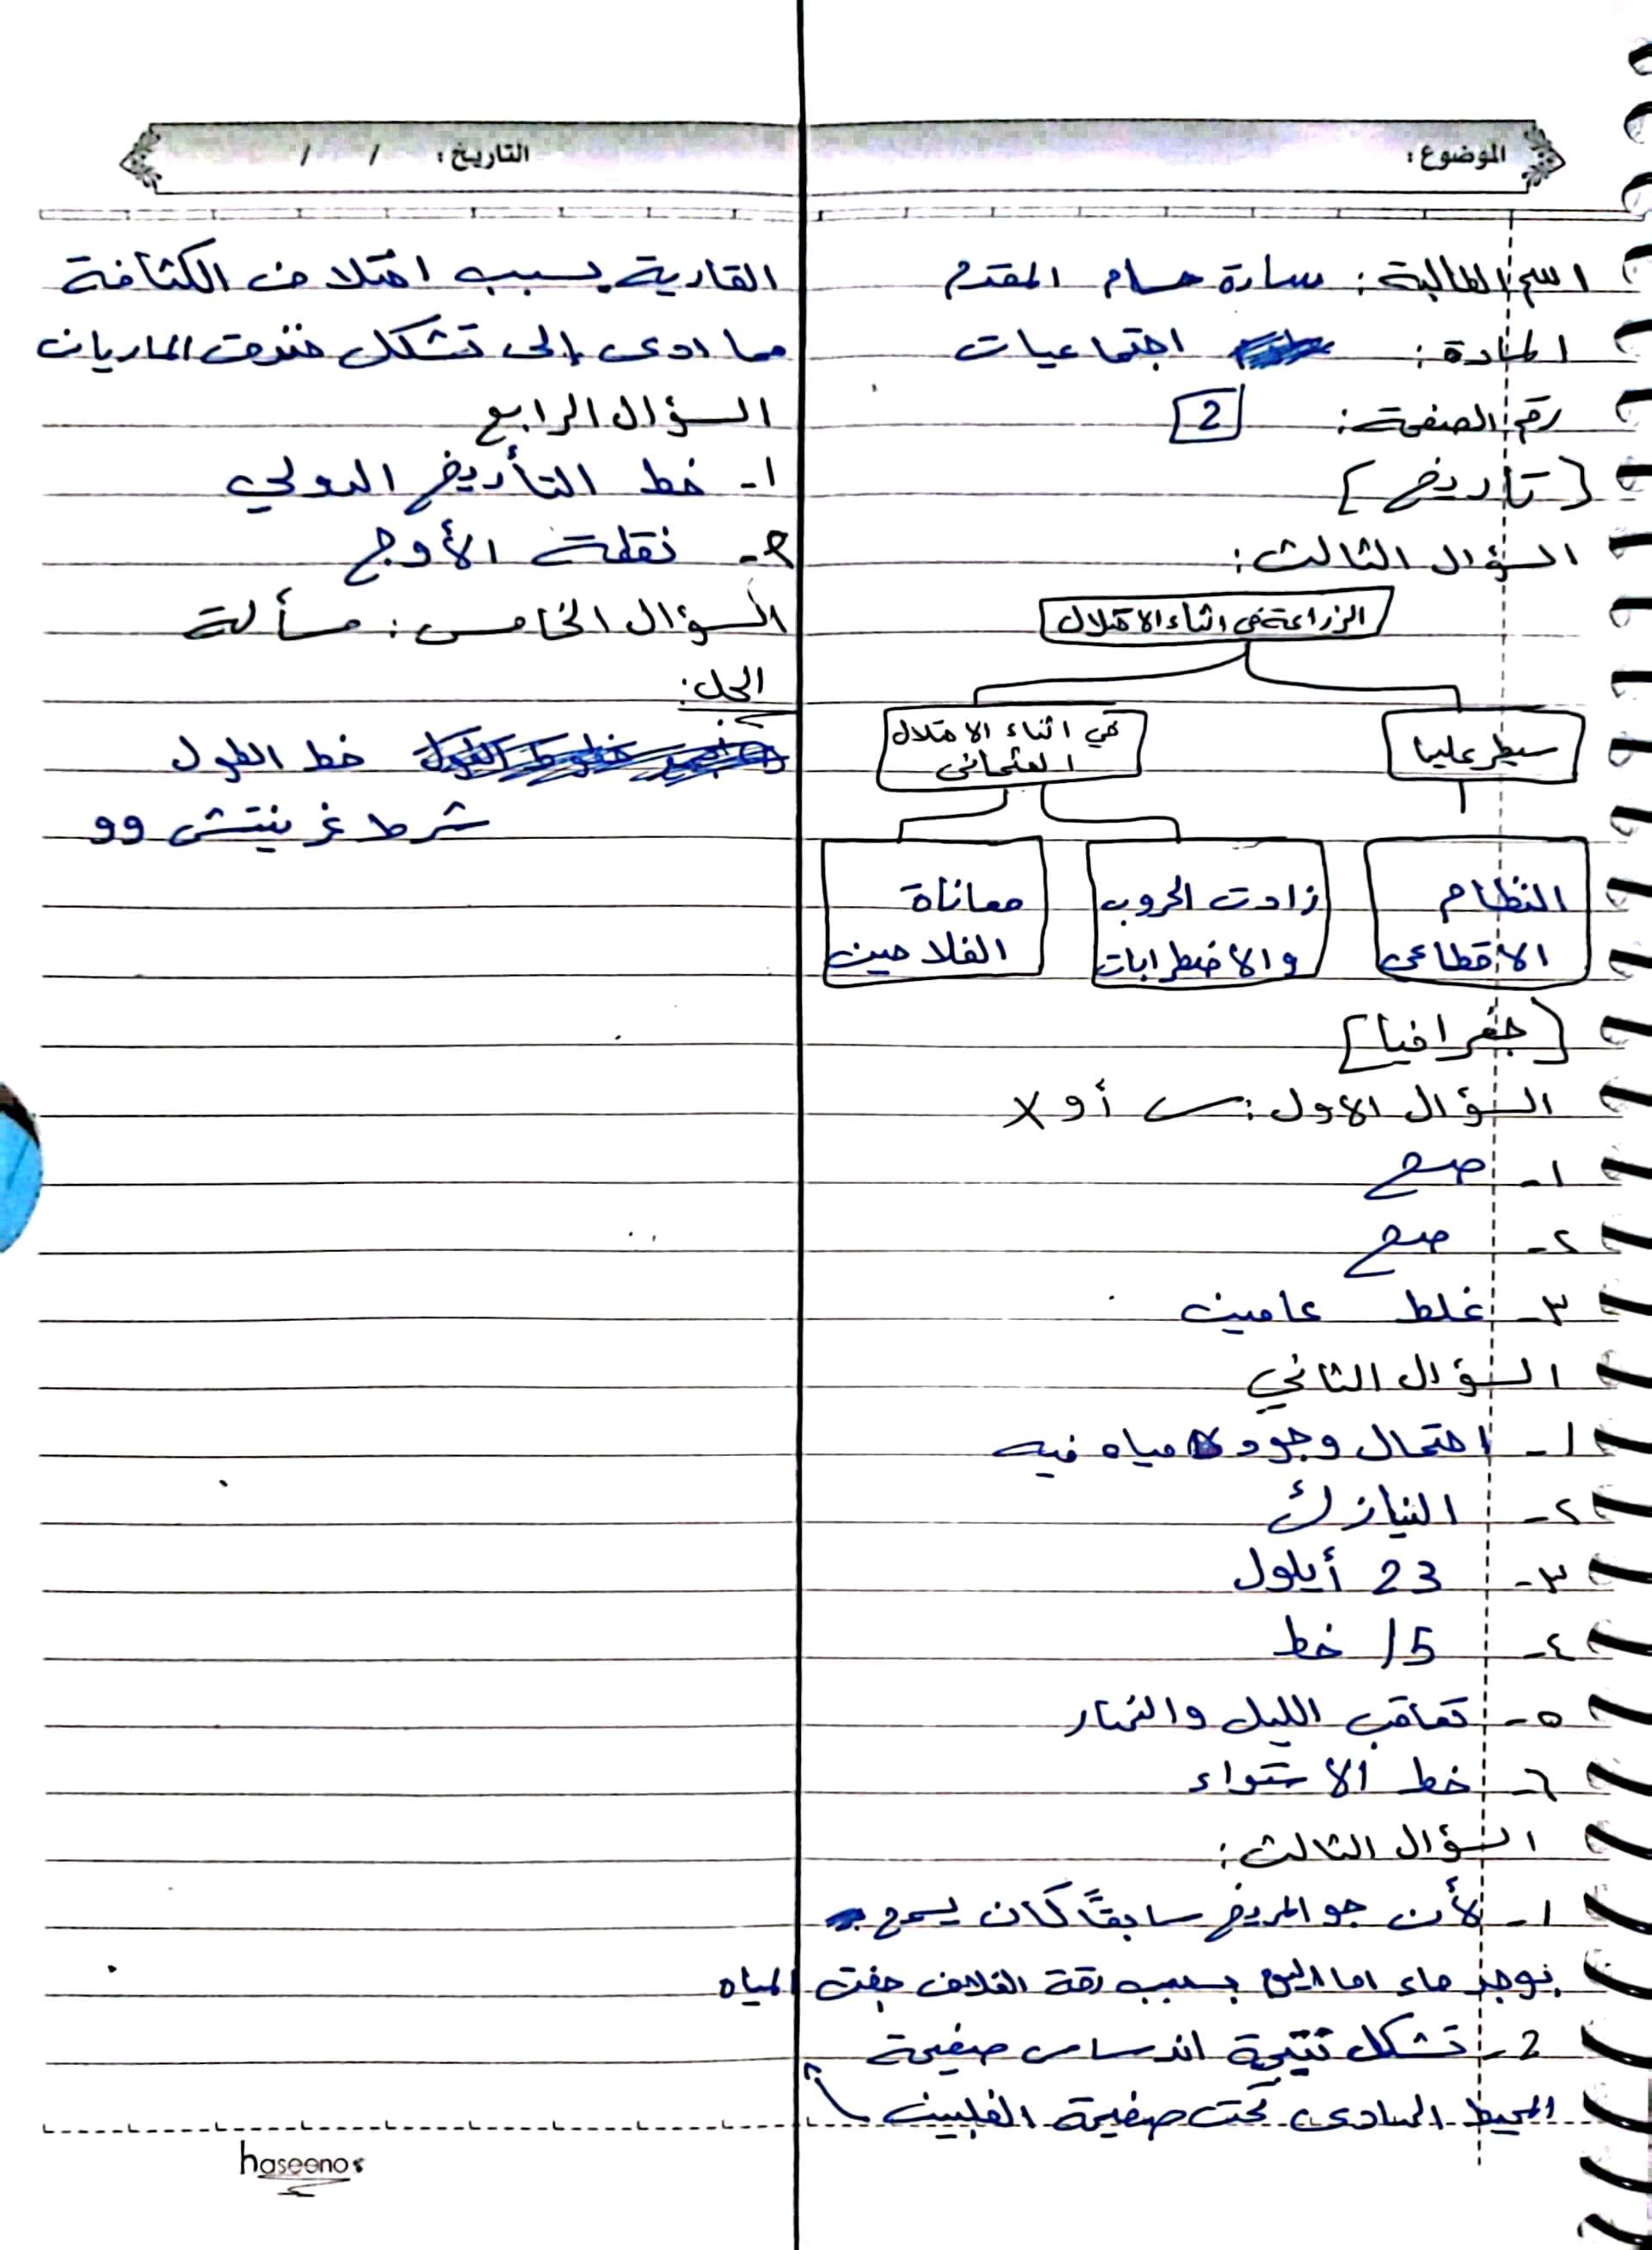 الموضوع:
التاريخ: / /
اسم الطالبة: سارة حسام المقدم
المادة: اجتماعيات
رقم الصفحة: 2
[تاريخ]
السؤال الثالث:
الزراعة في اثناء الاحتلال
سيطر عليها
في اثناء الاحتلال
العثماني
النظام
الاقطاعي
زادت الحروب
والاضطرابات
معاناة
الفلاحين
[جغرافيا]
السؤال الاول: أو X
١- صح
٢- صح
٣- غلط عامين
السؤال الثاني
١- احتمال وجود مياه فيه
٢- النيازك
٣- 23 أيلول
٤- 15 خط
٥- تعاقب الليل والنهار
٦- خط الاستواء
السؤال الثالث:
١- لأن جو المريخ سابقاً كان يسمح
بوجد ماء اما اليوم بسبب رقة الغلاف جفت المياه
2- تشكل نتيجة اندساس صفيحة
المحيط الهادي تحت صفيحة الفلبين
القارية بسبب اختلاف الكثافة
مما ادى إلى تشكل خندق الماريان
السؤال الرابع
١- خط التأريخ الدولي
٢- نقطة الأوج
السؤال الخامس: مسألة
الحل:
خط الطول
شرط غرينتش وو
haseenos